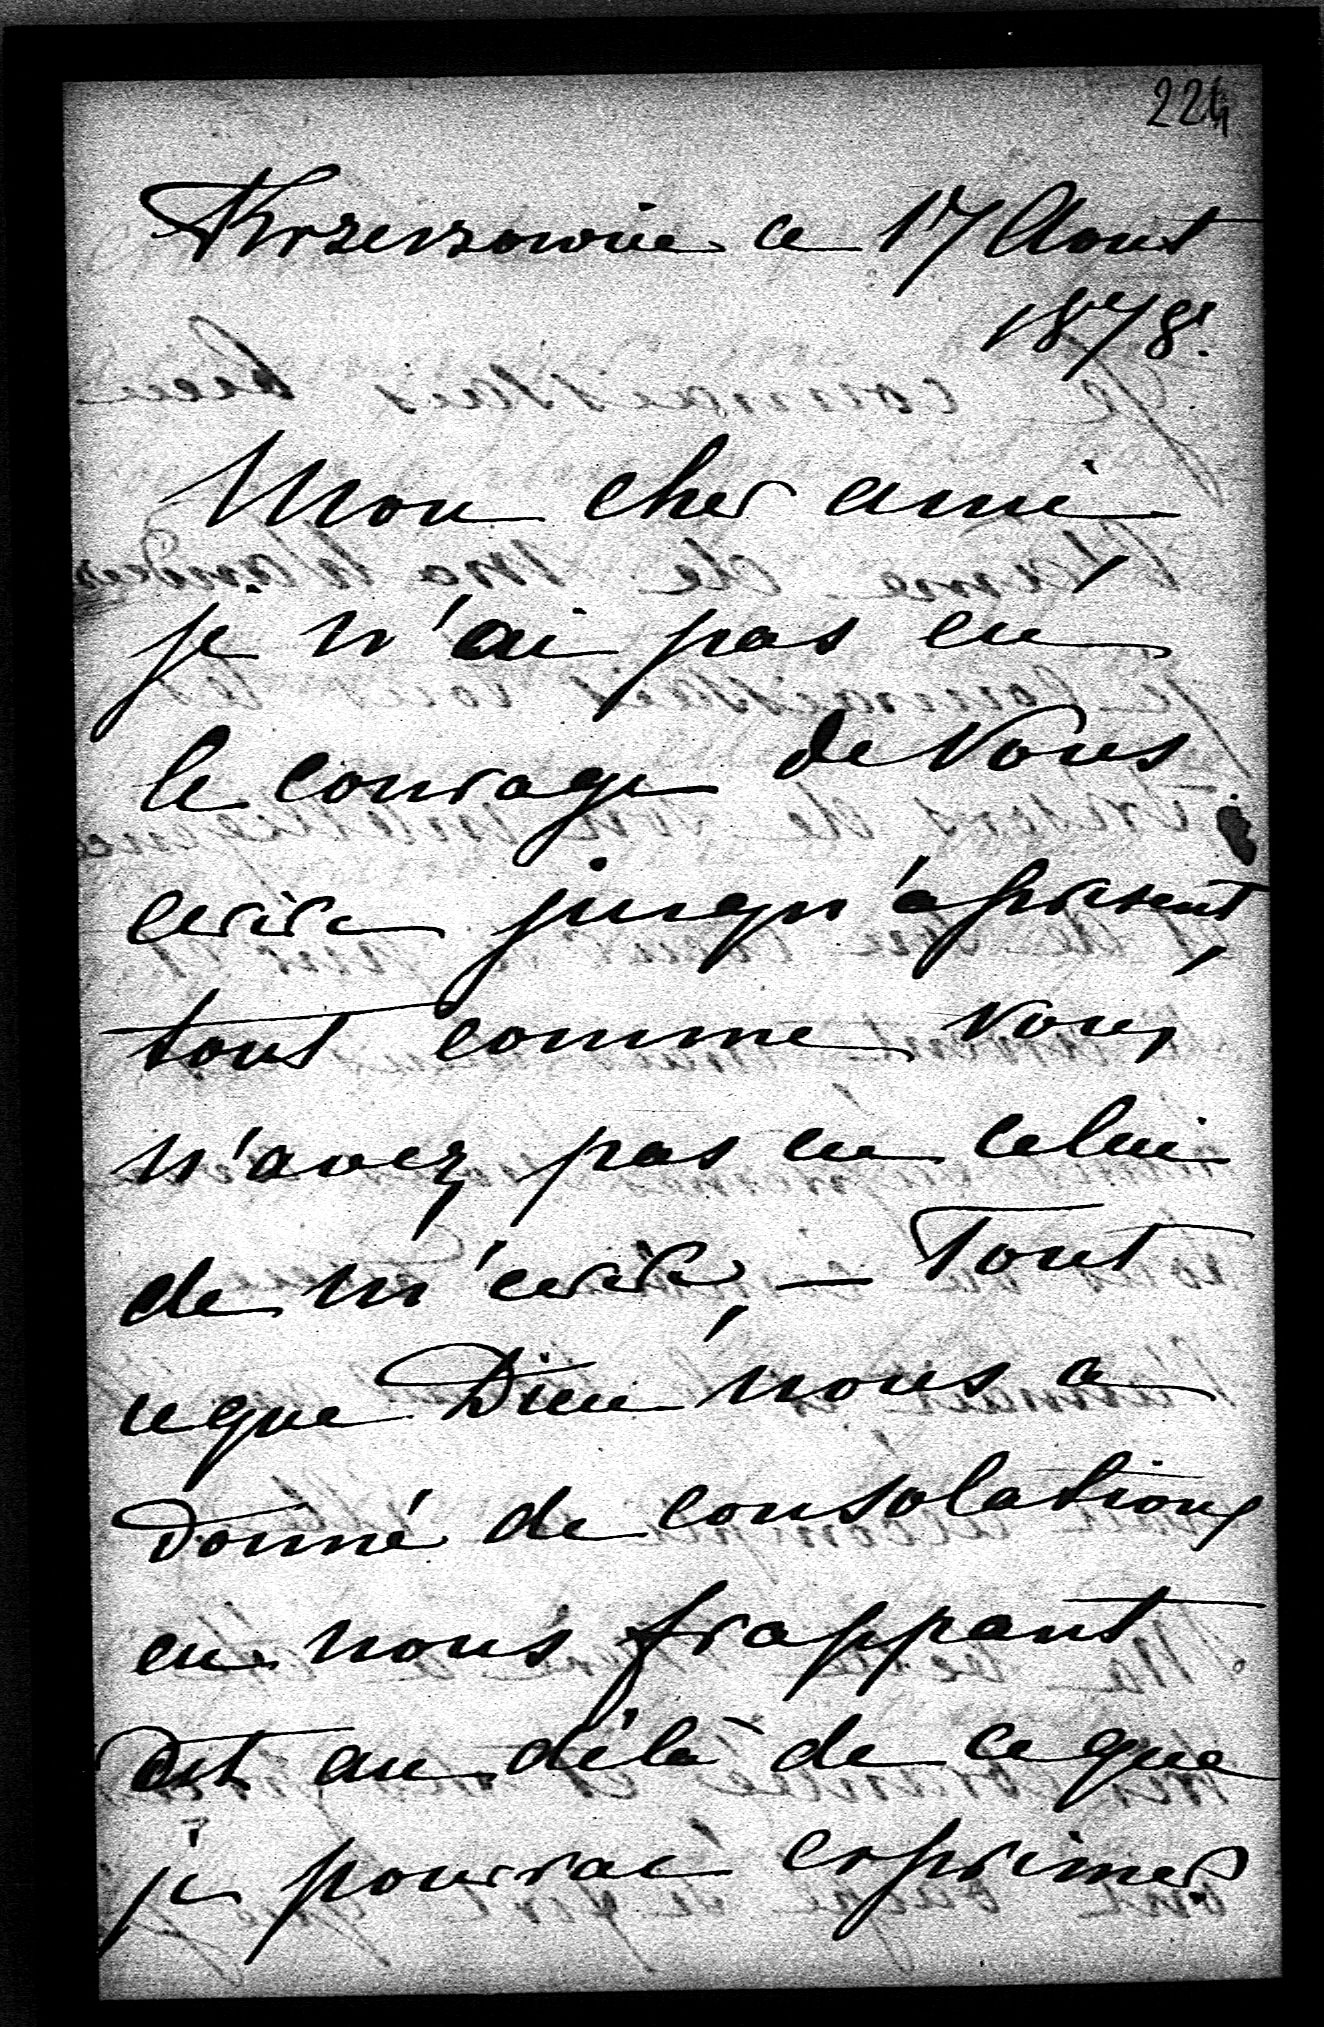 224
Krzeszowice ce 17 Aout
1878.
Mon cher ami,
je n'ai pas eu
le courage de Vous
ecrire jusqu'à présent,
tout comme Vous
n'avez pas eu celui
de m'ecrire, — Tout
ce que Dieu nous a
donné de consolations
en nous frappant
est au délà de ce que
je pourrai exprimer